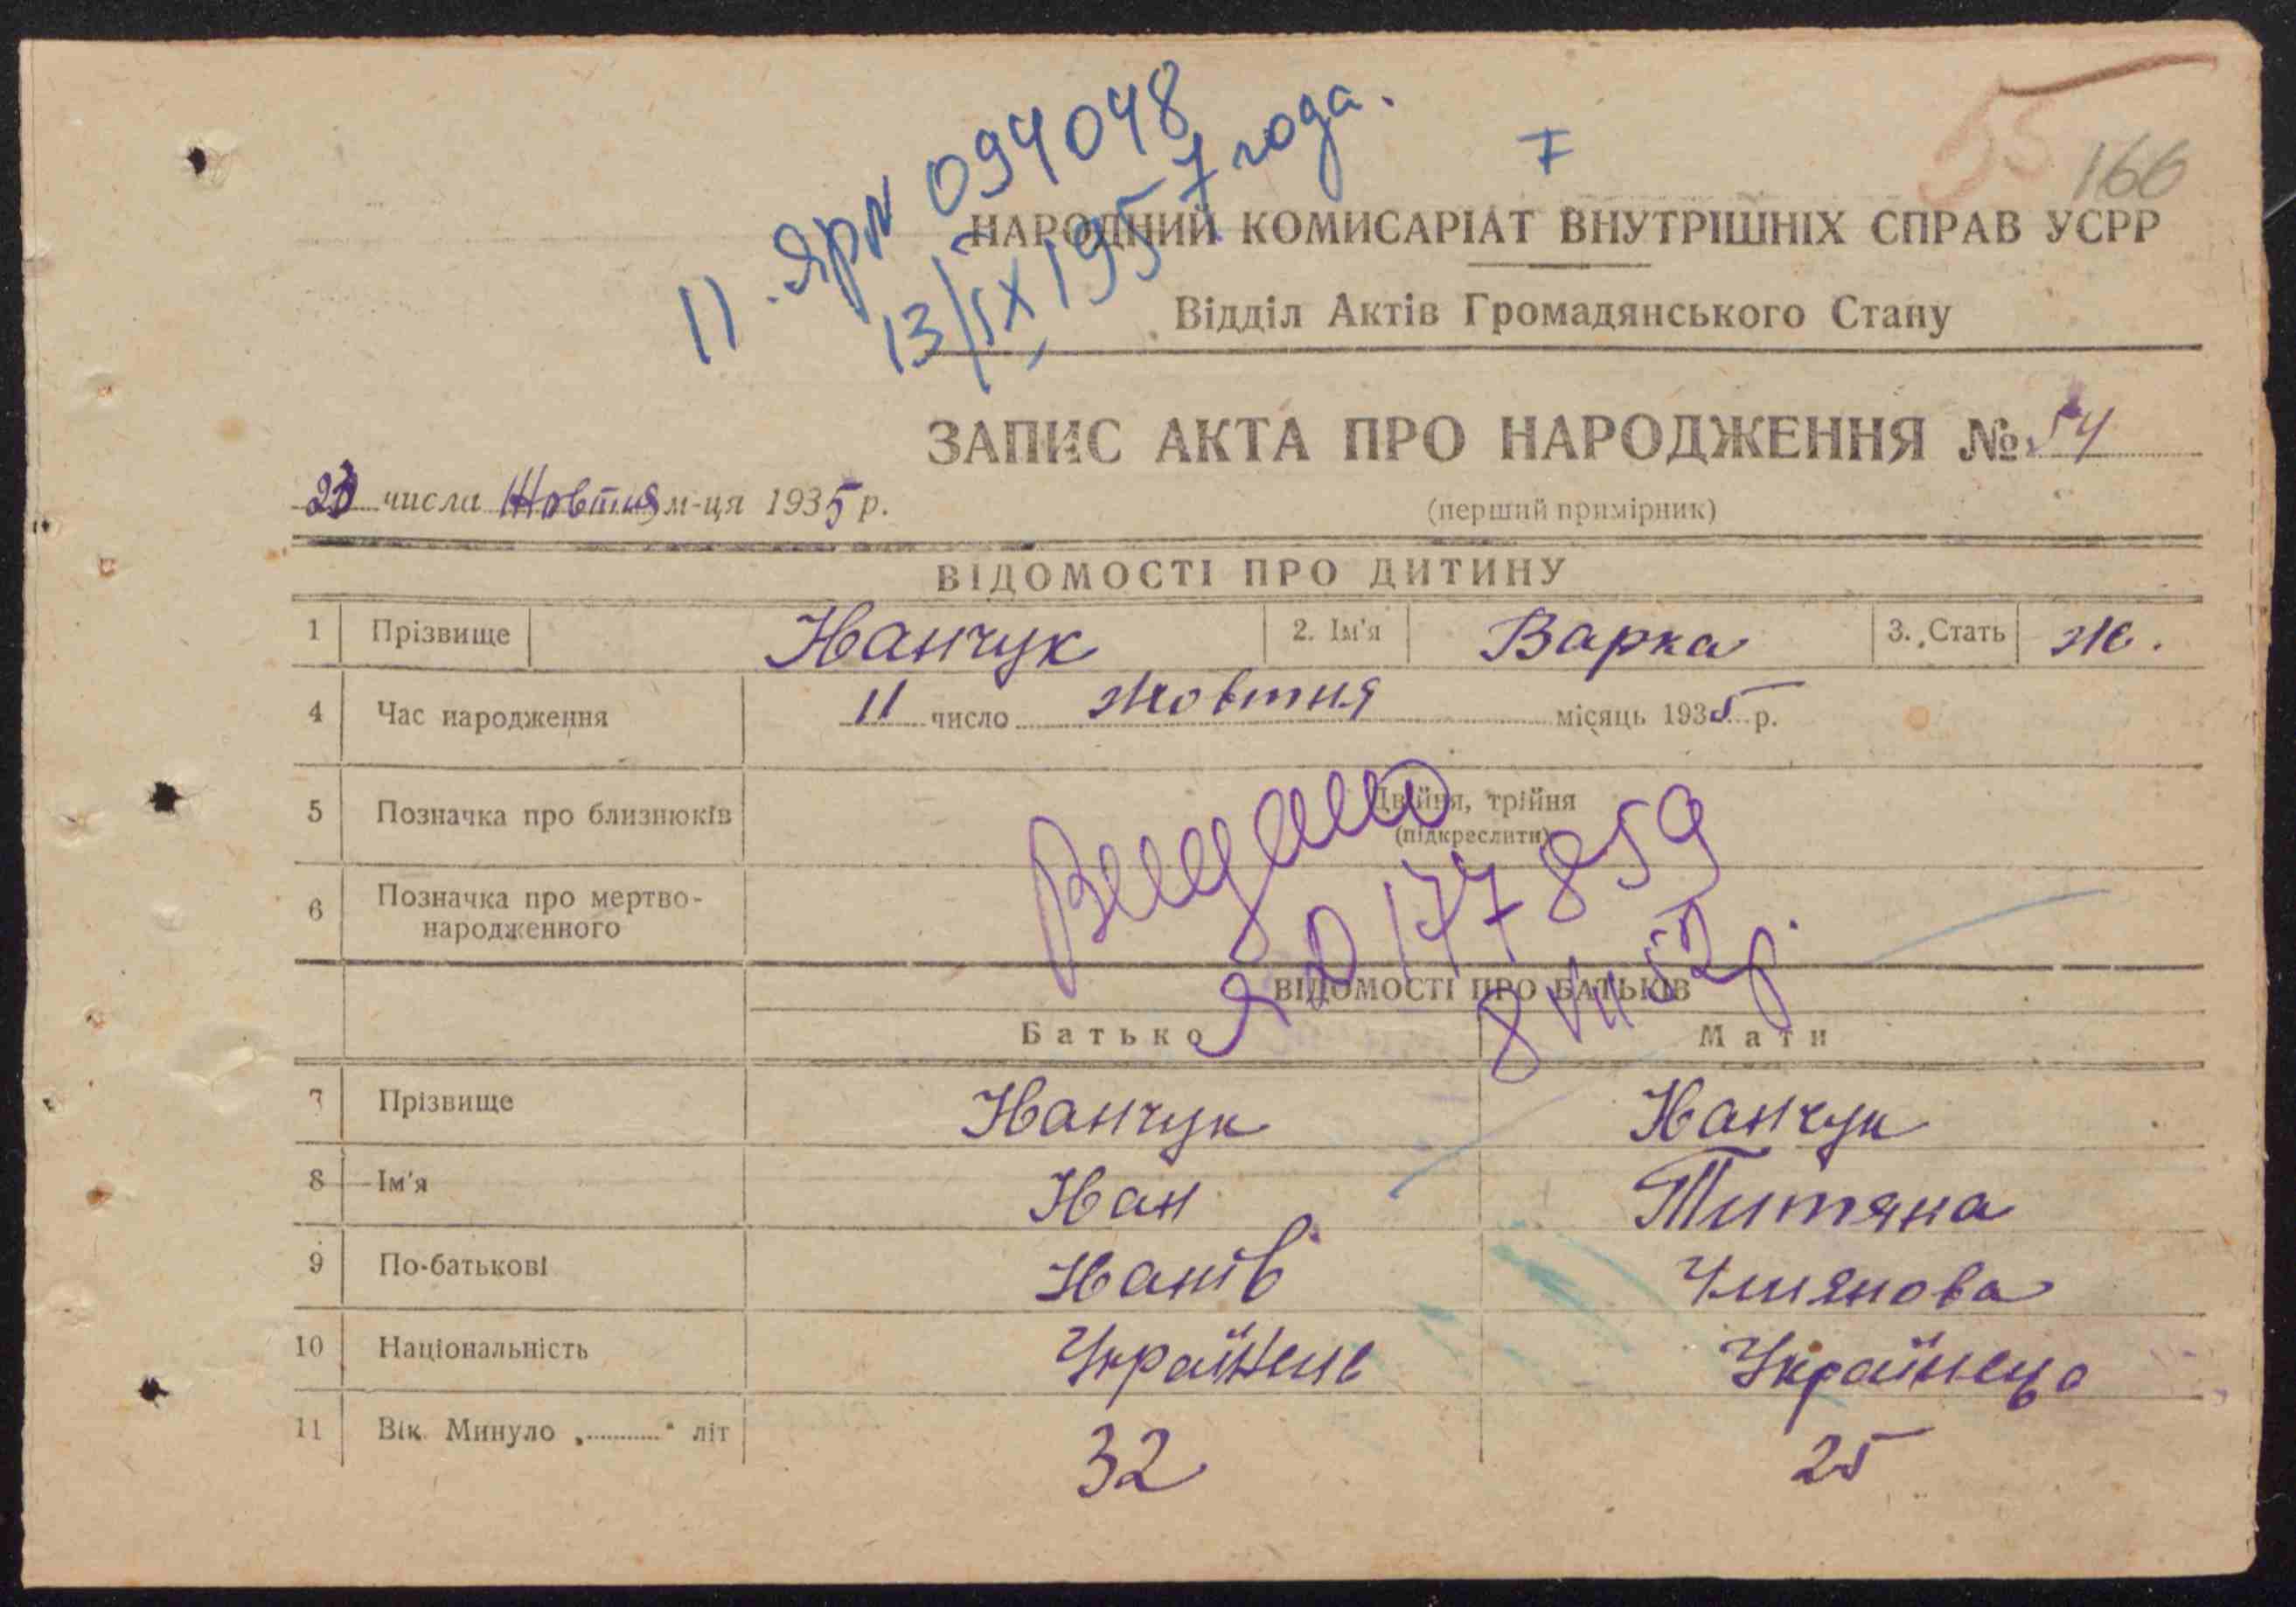 55
166
11 . ЯрN 094048
13/IX 1957 года.
НАРОДНИЙ КОМИСАРІАТ ВНУТРІШНІХ СПРАВ УСРР
Відділ Актів Громадянського Стану
ЗАПИС АКТА ПРО НАРОДЖЕННЯ № 54
числа Жовтня м-ця 1935 р.
(перший примірник)
ВІДОМОСТІ ПРО ДИТИНУ
1 Прізвище Іванчук 2. Ім'я Варка 3. Стать Ж.
4 Час народження 11 число жовтня місяць 1935 р.
5 Позначка про близнюків Двійня, трійня
(підкреслити)
6 Позначка про мертво-
народженного
Видано
177859
8 VII 52р.
ВІДОМОСТІ ПРО БАТЬКІВ
Батько Мати
7 Прізвище Іванчук Іванчук
8 Ім'я Іван Титяна
9 По-батькові Іванів
10 Національність Українець Українка
11 Вік. Минуло „..........“ літ 32 25